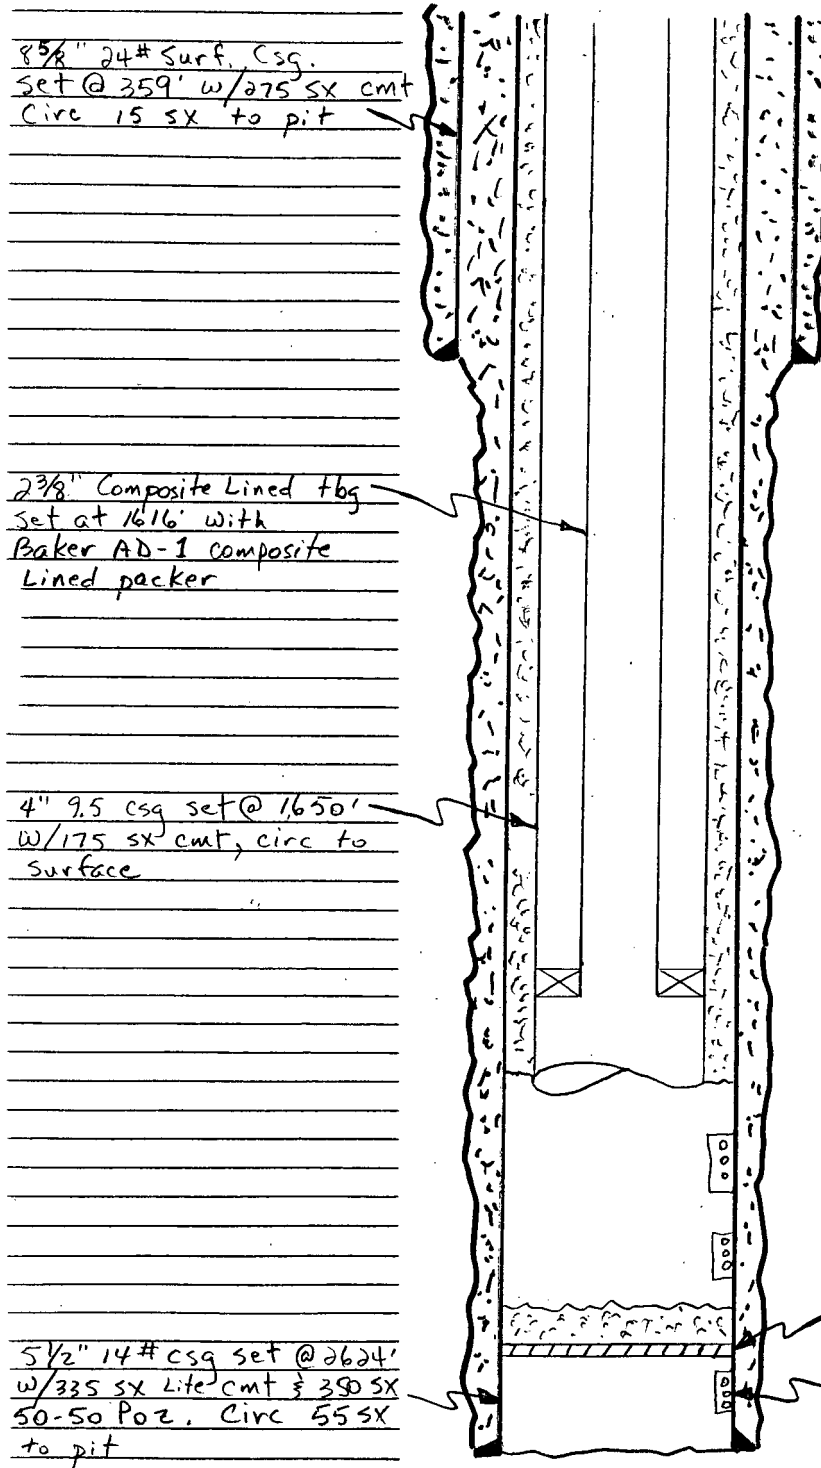 8 5/8" 24# Surf. Csg.
set @ 359' w/275 sx cmt
Circ 15 sx to pit
2 3/8" Composite Lined tbg
set at 1616' with
Baker AD-1 composite
Lined packer
4" 9.5 csg set @ 1650'
w/175 sx cmt, circ to
surface
5 1/2" 14# csg set @ 2624'
w/335 sx Lite cmt & 350 sx
50-50 Poz. Circ 55 sx
to pit